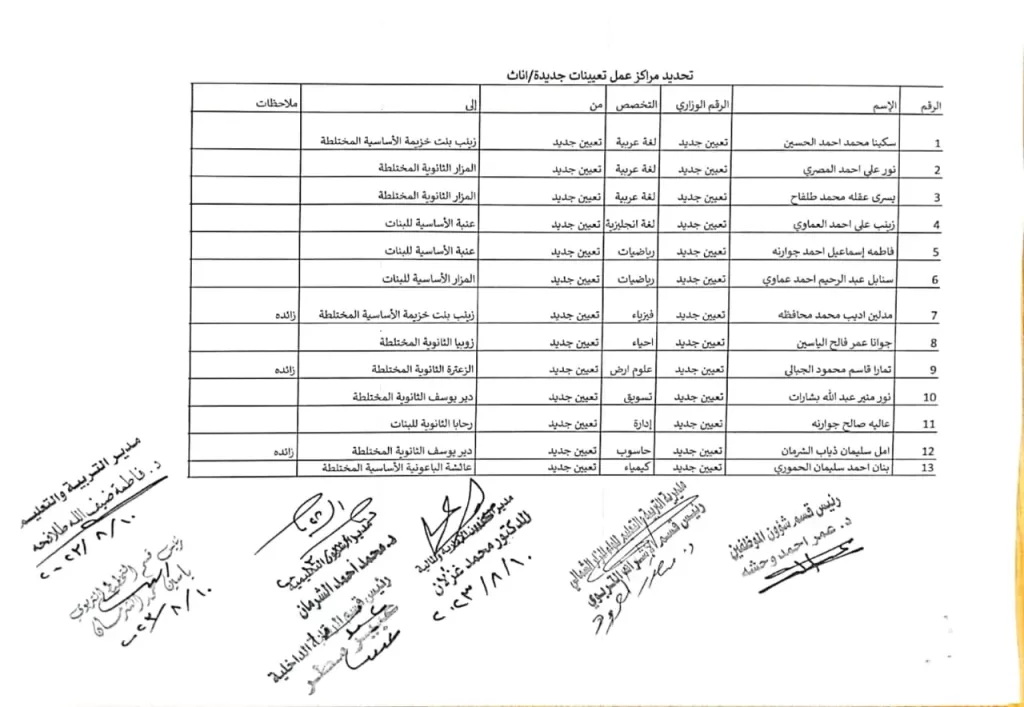 تحديد مراكز عمل تعيينات جديدة/اناث
الرقم الإسم الرقم الوزاري التخصص من إلى ملاحظات
1 سكينا محمد احمد الحسين تعيين جديد لغة عربية تعيين جديد زينب بنت خزيمة الأساسية المختلطة
2 نور علي احمد المصري تعيين جديد لغة عربية تعيين جديد المزار الثانوية المختلطة
3 يسرى عقله محمد طلفاح تعيين جديد لغة عربية تعيين جديد المزار الثانوية المختلطة
4 زينب علي احمد العماوي تعيين جديد لغة انجليزية تعيين جديد عنبة الأساسية للبنات
5 فاطمه إسماعيل احمد جوارنه تعيين جديد رياضيات تعيين جديد عنبة الأساسية للبنات
6 سنابل عبد الرحيم احمد عماوي تعيين جديد رياضيات تعيين جديد المزار الأساسية للبنات
7 مدلين اديب محمد محافظه تعيين جديد فيزياء تعيين جديد زينب بنت خزيمة الأساسية المختلطة زائده
8 جوانا عمر فالح الياسين تعيين جديد احياء تعيين جديد زوبيا الثانوية المختلطة
9 تمارا قاسم محمود الجبالي تعيين جديد علوم ارض تعيين جديد الزعترة الثانوية المختلطة زائده
10 نور منير عبد الله بشارات تعيين جديد تسويق تعيين جديد دير يوسف الثانوية المختلطة
11 عاليه صالح جوارنه تعيين جديد إدارة تعيين جديد رحابا الثانوية للبنات
12 امل سليمان ذياب الشرمان تعيين جديد حاسوب تعيين جديد دير يوسف الثانوية المختلطة زائده
13 بنان احمد سليمان الحموري تعيين جديد كيمياء تعيين جديد عائشة الباعونية الأساسية المختلطة
رئيس قسم شؤون الموظفين
د. عمر احمد وحشه
رئيس قسم الإشراف التربوي
الدكتور محمد غزلان
٢٠٢٣/٨/١٠
د. محمد أحمد الشرمان
رئيس قسم الرقابة الداخلية
مدير التربية والتعليم
د. فاطمة ضيف الله طلافحه
٢٠٢٣/٨/١٠
رئيس قسم التخطيط التربوي
٢٠٢٣/٨/١٠